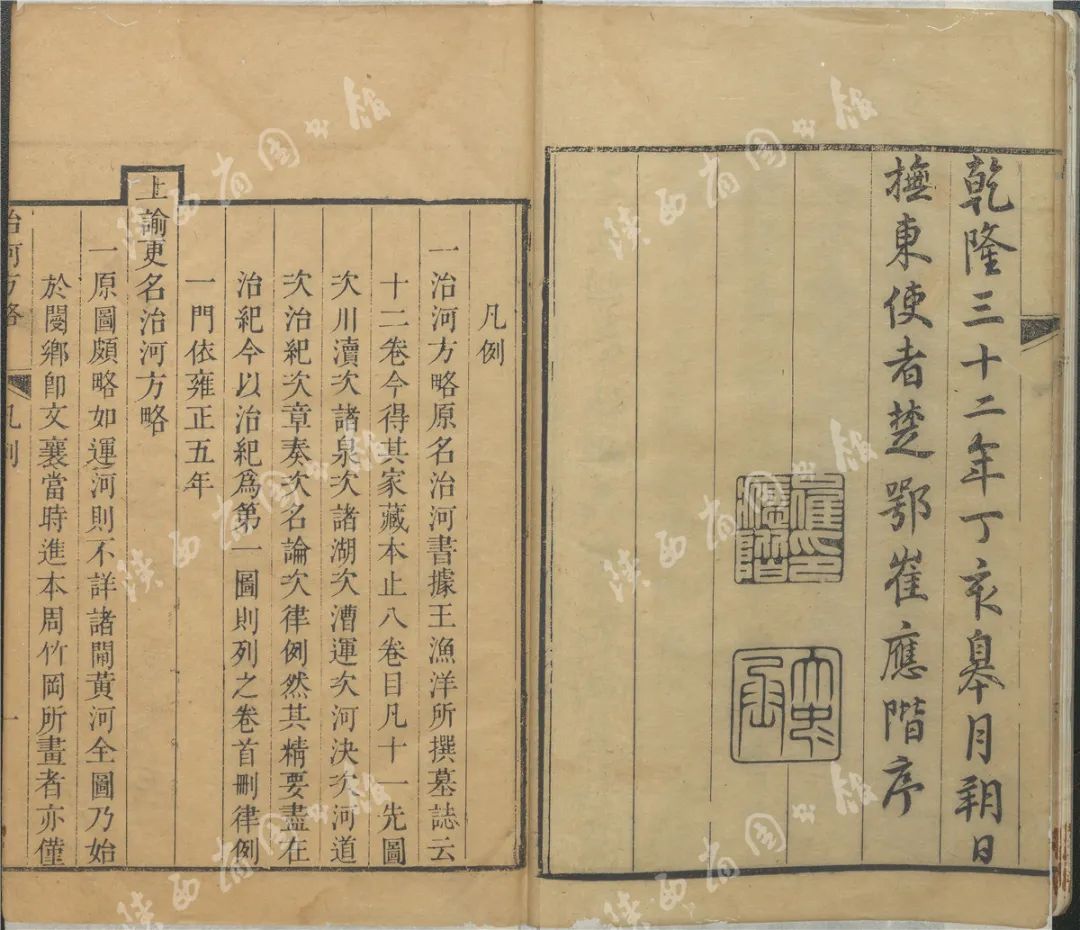 乾隆三十二年丁亥皋月朔日
撫東使者楚鄂崔應階序
崔印應階
凡例
一治河方略原名治河書據王漁洋所撰墓誌云
十二卷今得其家藏本止八卷目凡十一先圖
次川瀆次諸泉次諸湖次漕運次河決次河道
次治紀次章奏次名論次律例然其精要盡在
治紀今以治紀爲第一圖則列之卷首刪律例
一門依雍正五年
上諭更名治河方略
一原圖頗略如運河則不詳諸閘黃河全圖乃始
於閿鄉卽文襄當時進本周竹岡所畫者亦僅
治河方略
凡例
一
陕西省图书馆